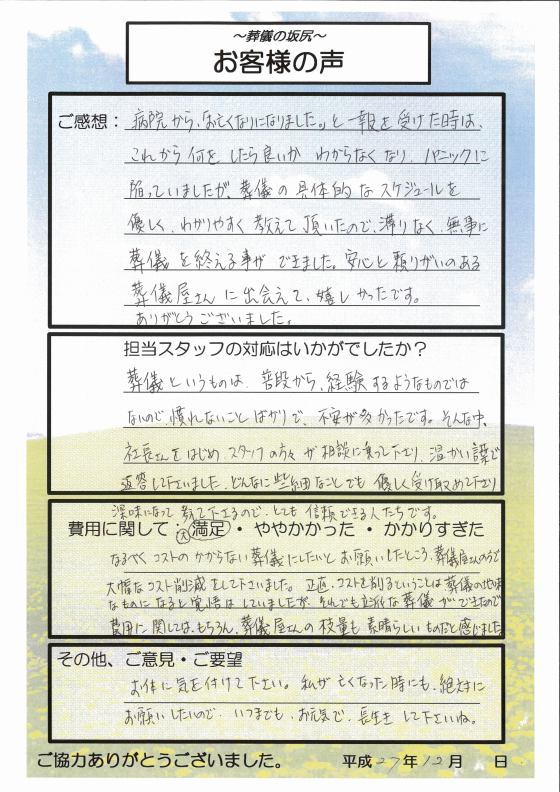 ～葬儀の坂尻～
お客様の声
ご感想：病院から、「お亡くなりになりました。」と一報を受けた時は、
これから何をしたら良いかわからなくなり、パニックに
陥っていましたが、葬儀の具体的なスケジュールを
優しく、わかりやすく教えて頂いたので、滞りなく、無事に
葬儀を終える事ができました。安心と頼りがいのある
葬儀屋さんに出会えて、嬉しかったです。
ありがとうございました。
担当スタッフの対応はいかがでしたか？
葬儀というものは、普段から、経験するようなものでは
ないので、慣れないことばかりで、不安が多かったです。そんな中、
社長さんをはじめ、スタッフの方々が相談に乗って下さり、温かい言葉で
返答して下さいました。どんなに些細なことでも優しく受け取めて下さり
親味になって教えて下さるので、とても信頼できる人たちです。
費用に関して：大満足・ややかかった・かかりすぎた
なるべくコストのかからない葬儀にしたいとお願いしたところ、葬儀屋さんの方で
大幅なコスト削減をして下さいました。正直、コストを削るということは葬儀の地味
なものになると覚悟はしていましたが、それでも立派な葬儀ができたので
費用に関しては、もちろん、葬儀屋さんの技量も素晴らしいものだと感じました
その他、ご意見・ご要望
お体に気を付けて下さい。私が亡くなった時にも、絶対に
お願いしたいので、いつまでも、お元気で、長生きして下さいね。
ご協力ありがとうございました。 平成27年12月 日